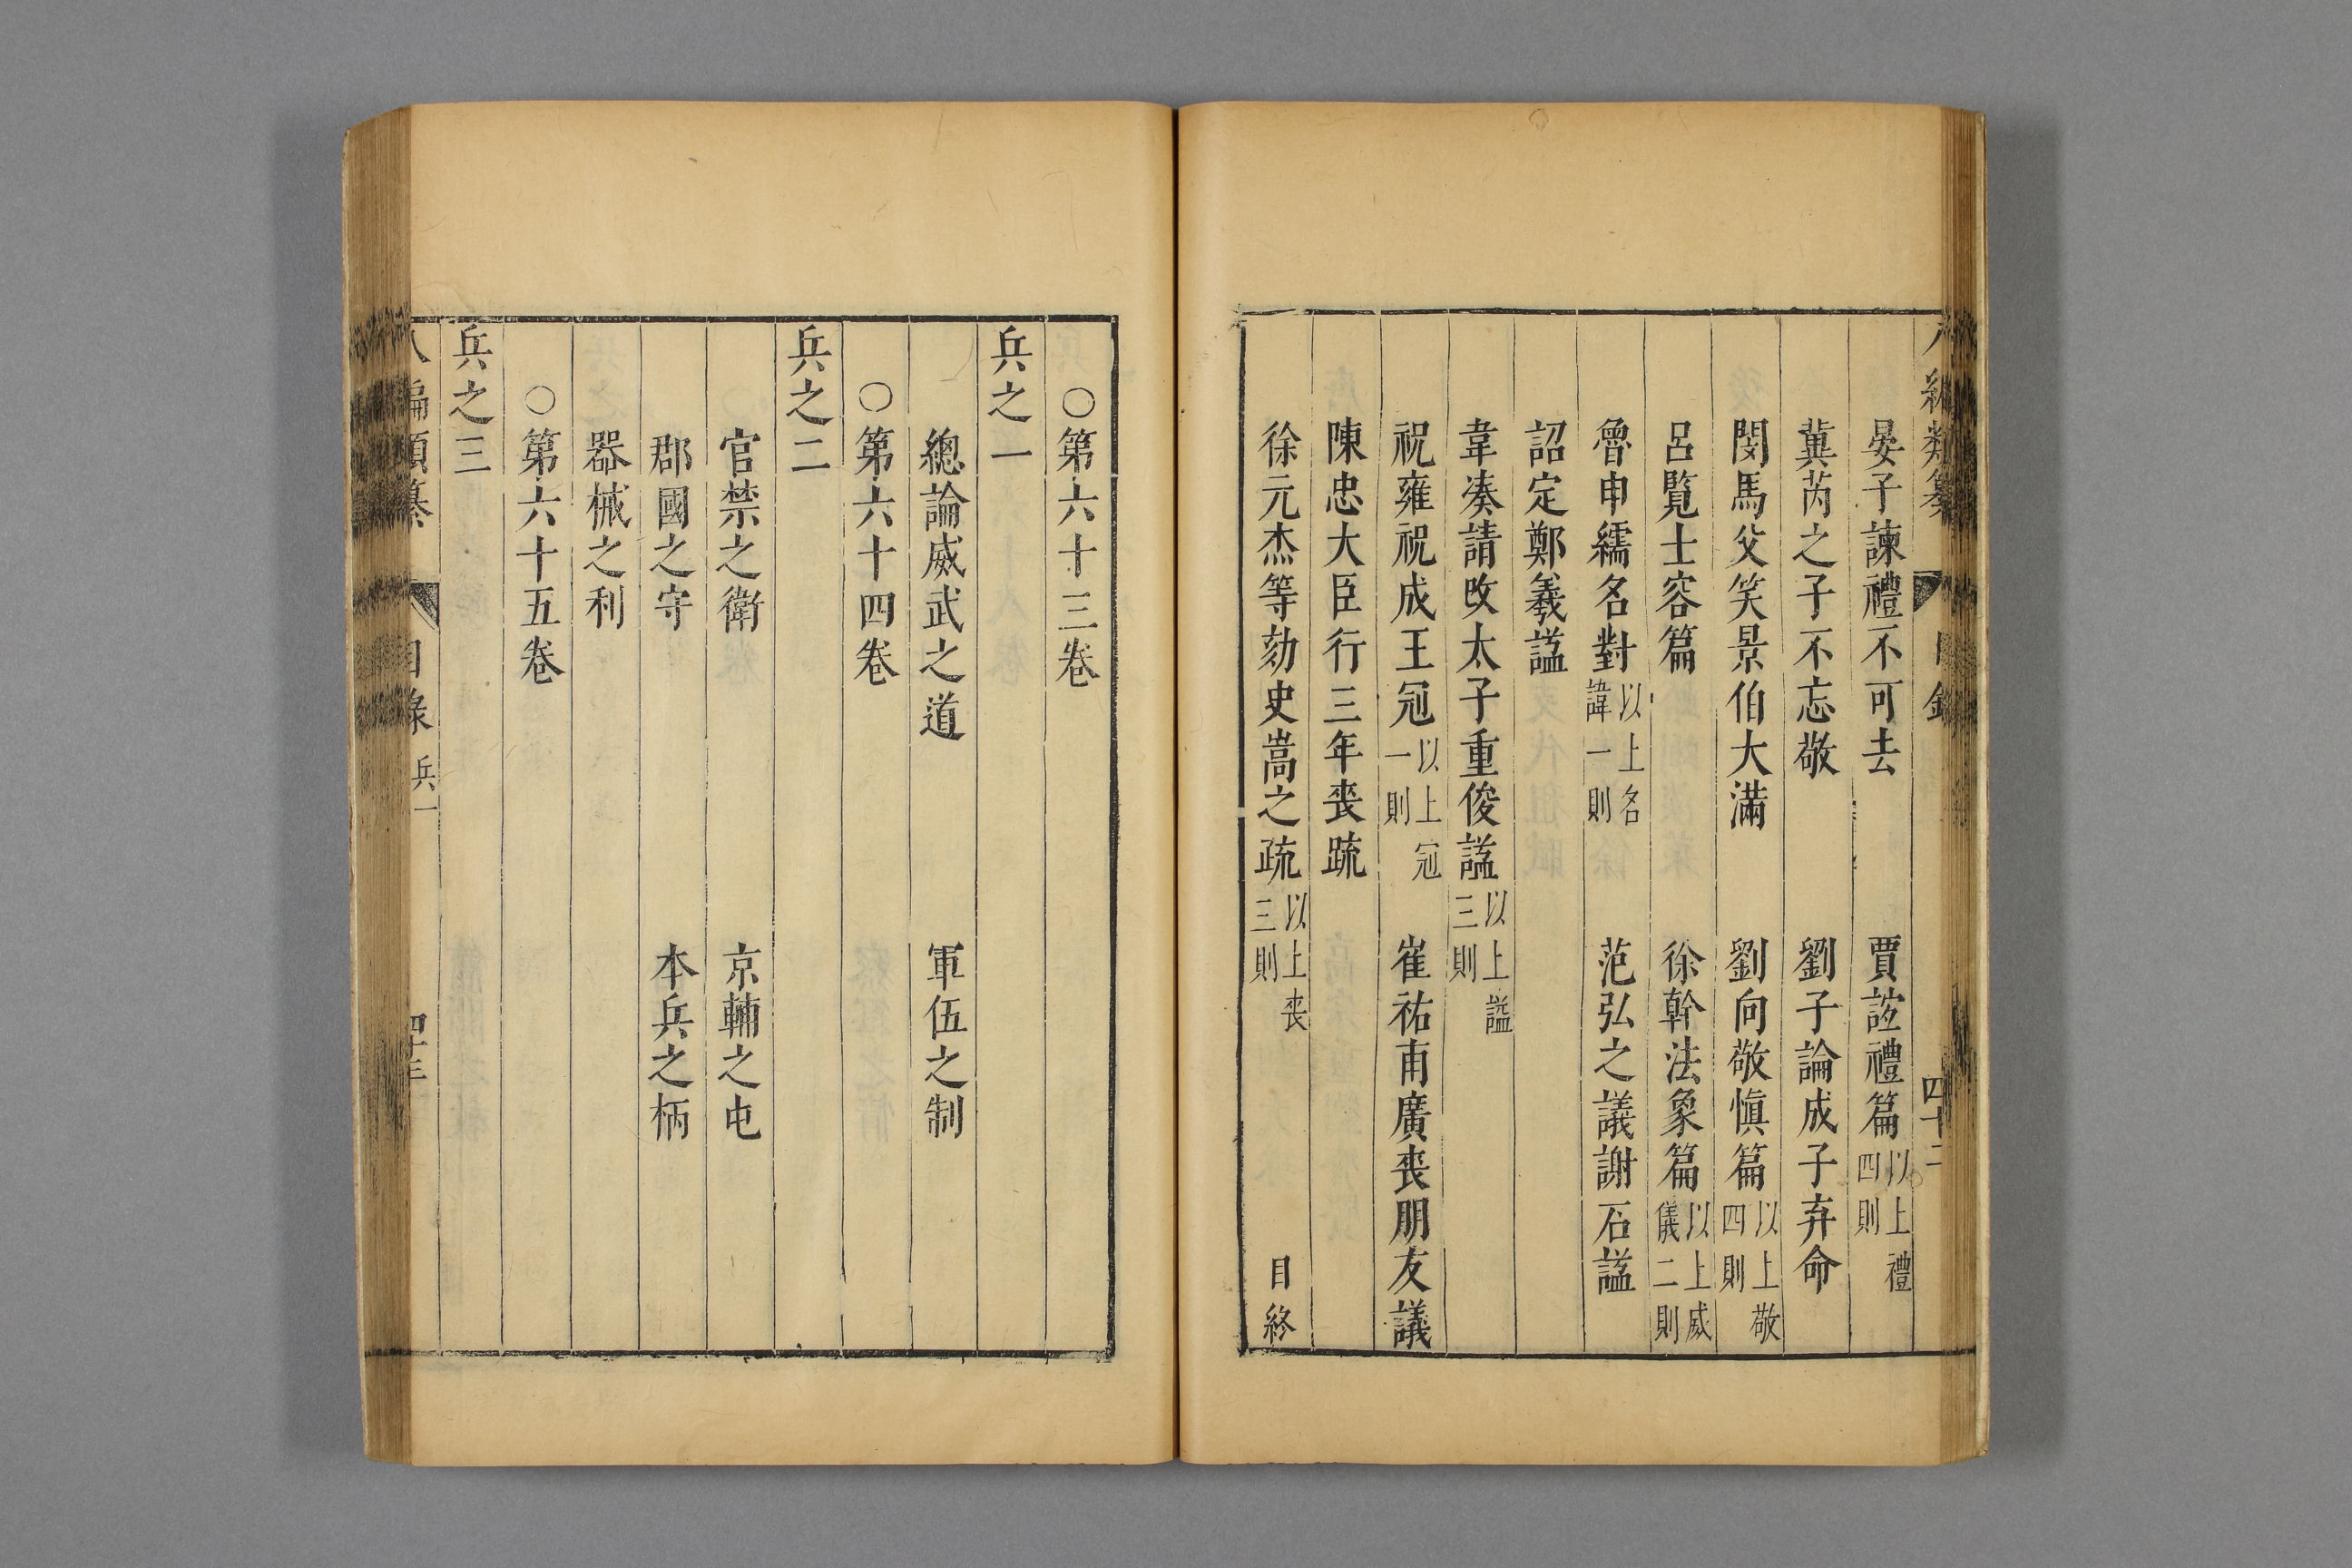 八編類纂 目錄 四十二
晏子諫禮不可去 賈誼禮篇 以上禮四則
冀芮之子不忘敬 劉子論成子弃命
閔馬父笑景伯大滿 劉向敬慎篇 以上敬四則
呂覽士容篇 徐幹法象篇 以上威儀二則
魯申繻名對 以上名諱一則 范弘之議謝石謚
詔定鄭羲謚
韋湊請改太子重俊謚 以上謚三則
祝雍祝成王冠 以上冠一則 崔祐甫廣喪朋友議
陳忠大臣行三年喪疏
徐元杰等劾史嵩之疏 以上喪三則 目終
○第六十三卷
兵之一
總論威武之道 軍伍之制
○第六十四卷
兵之二
官禁之衛 京輔之屯
郡國之守 本兵之柄
器械之利
○第六十五卷
兵之三
八編類纂 目錄 兵一 四十三